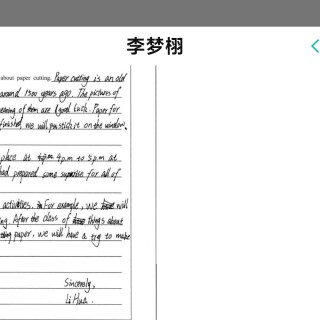 李梦栩
about paper cutting. Paper cutting is an old
around 1500 years ago. The pictures of
of them are good luck. Paper for
finished, we will stick it on the window.
place at 4 p.m to 5 p.m at
had prepared some surprise for all of
activities. For example, we will
After the class of things about
paper, we will have a try to make
Sincerely,
Li Hua.